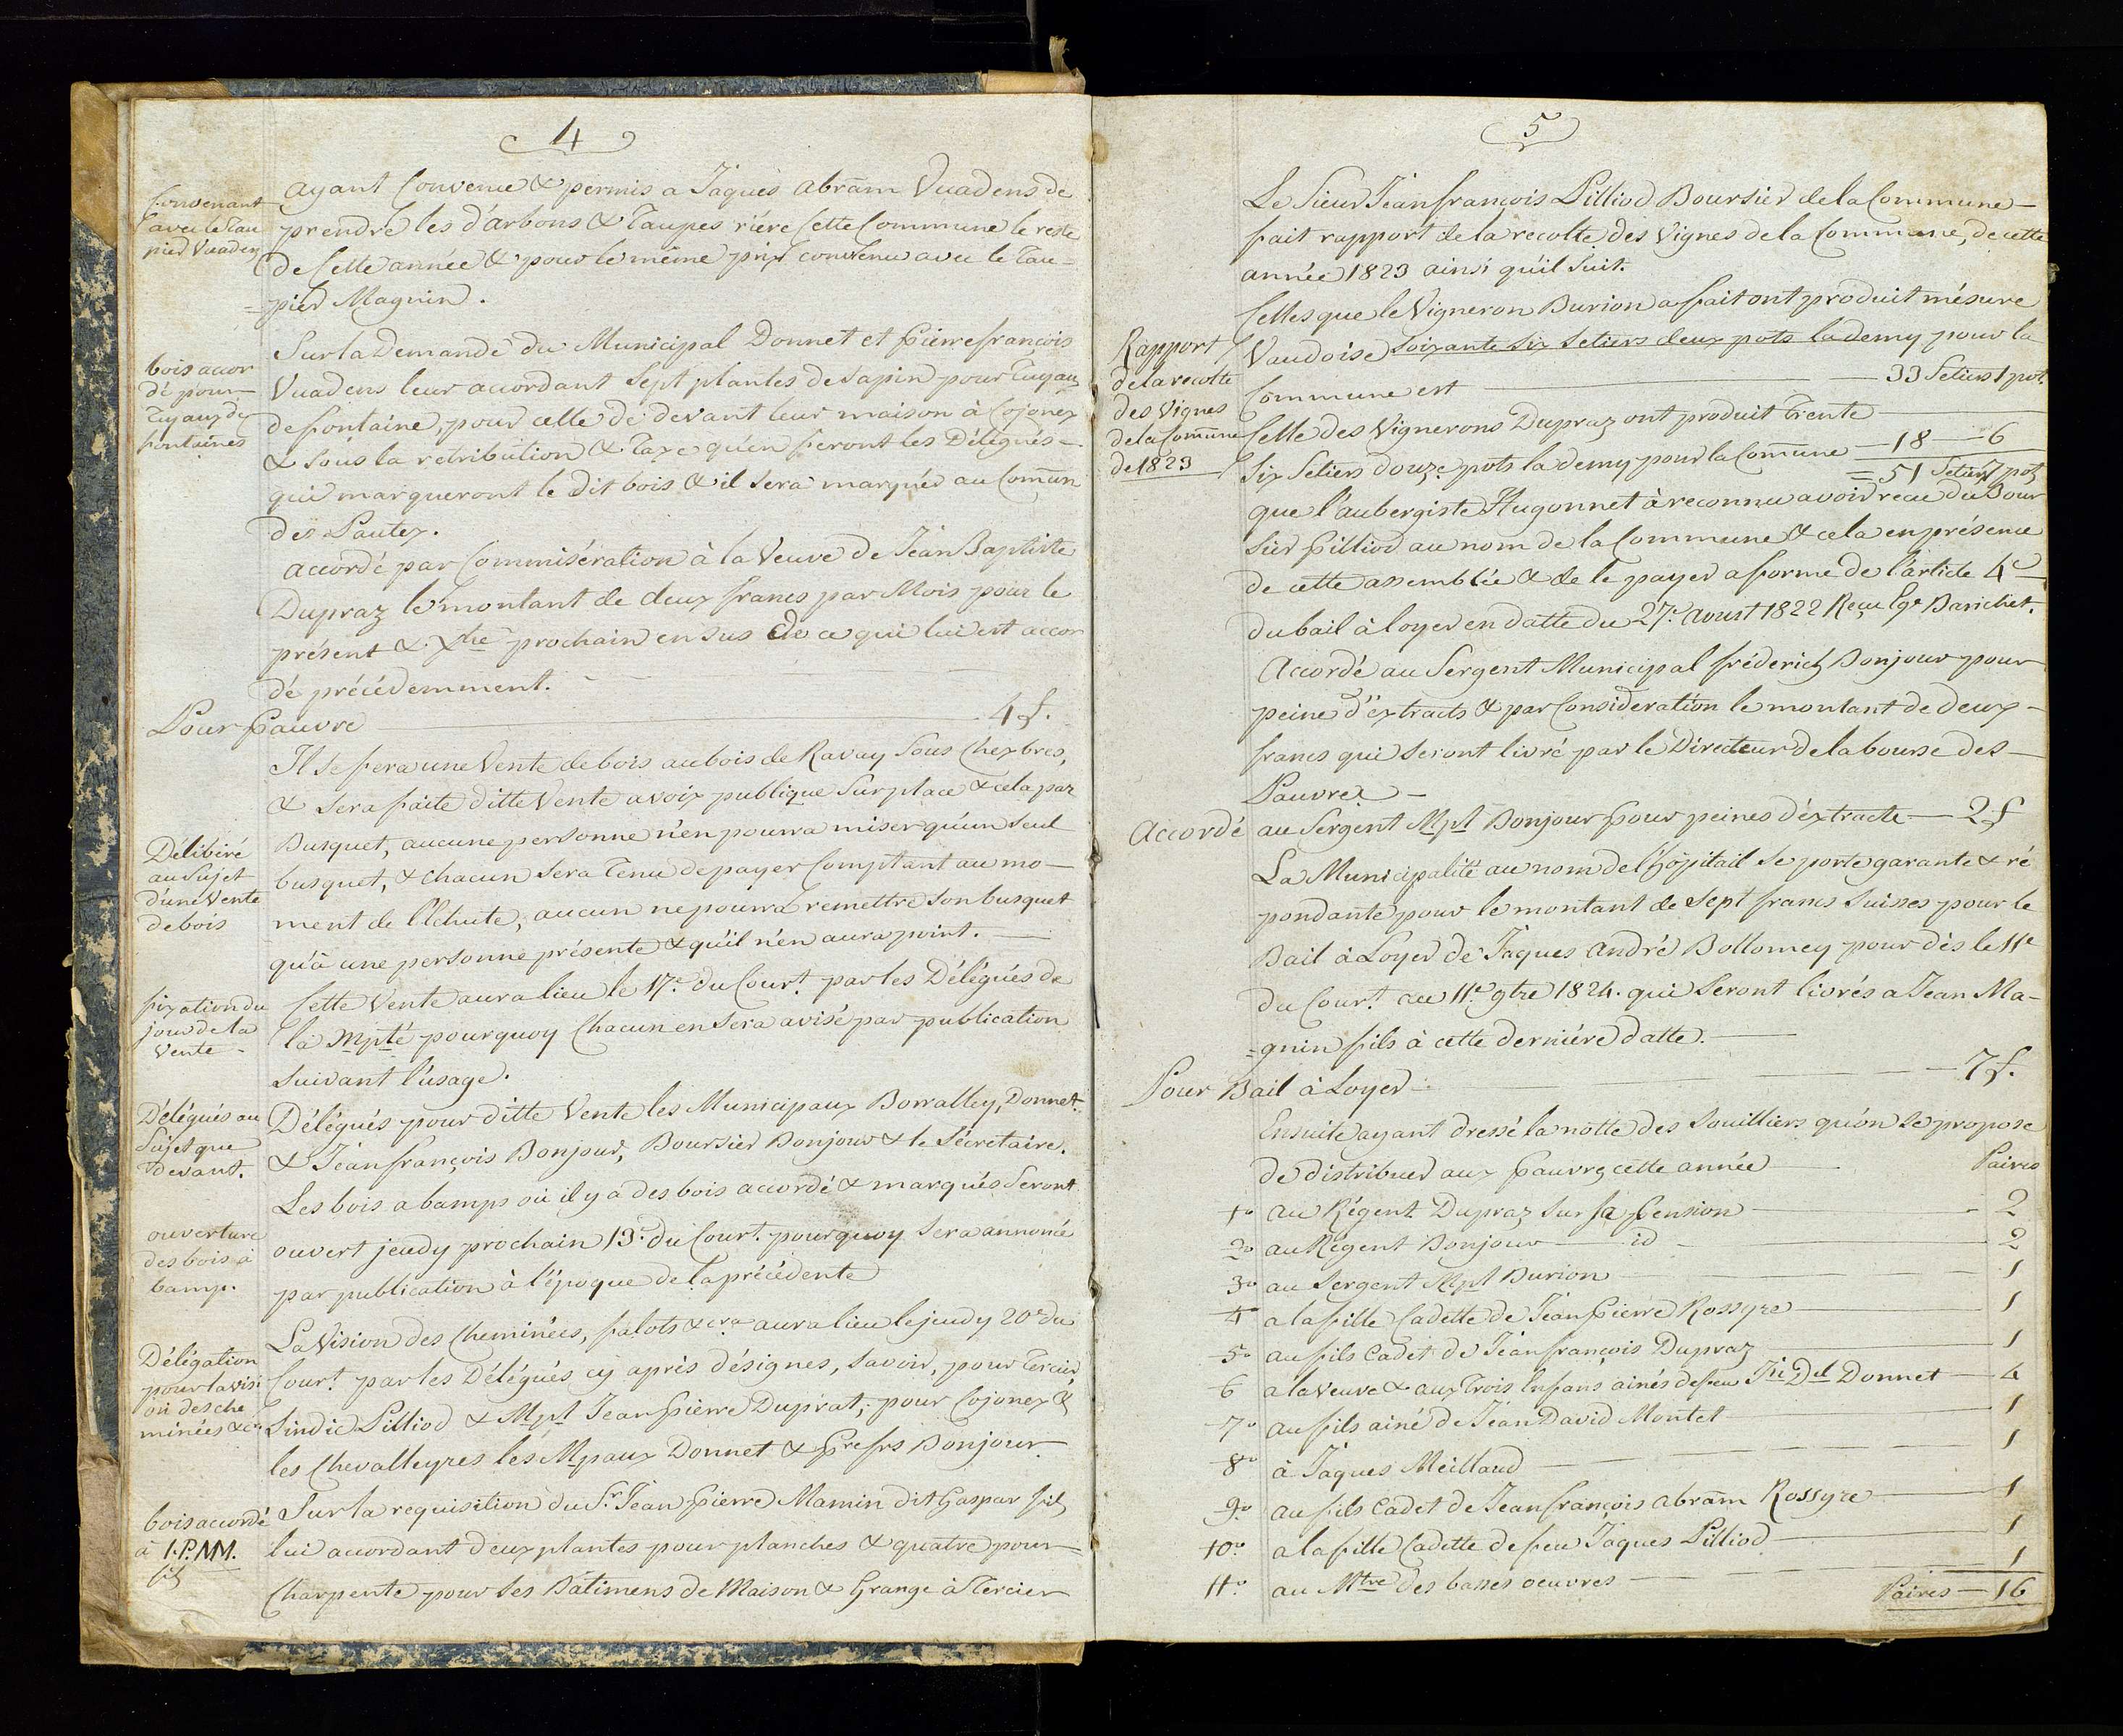 4
Convenant
avec le Tau
pier Vuadens
ayant Convenu & permis a Jaques abram Vuadens de
prendre les d'arbons & Taupes riére cette Commune le reste
de cette année & pour le même prix convenu avec le Tau-
=pier Magnin.
bois accor
dé pour
Tuyaux de
fontaines
Sur la Demande du Municipal Donnet et Pierre françois
Vuadens leur accordant Sept plantes de sapin pour Tuyaux
de fontaine, pour celle de devant leur maison à Cojonex
& sous la retribution & Taxe qu'en feront les Délégués-
qui marqueront le dit bois & il sera marqué au Comũn
des Pautex.
accordé par Commisération à la Veuve de Jean Baptiste
Dupraz le montant de deux francs par Mois pour le
présent & Xbre prochain en sus de ce qui lui est accor
dé précédemment.
Pour Pauvre 4 f.
Délibéré
au Sujet
d'une Vente
de bois
Il se fera une Vente de bois au bois de Ravay Sous Chexbres,
& sera faite ditte Vente a voix publique Sur place & cela par
Busquet, aucune personne n'en pourra miser qu'un seul
busquet, & chacun sera Tenu de payer Comptant au mo-
ment de l'Echute, aucun ne pourra remettre son busquet
qu'à une personne présente & qu'il n'en aura point.
fixation du
jour de la
Vente
Cette Vente aura lieu le 17e du Court. par les Délégués de
la Mpté pourquoy Chacun en Sera avisé par publication
suivant l'usage.
Délégués au
Sujet que
devant.
Délégués pour ditte Vente les Municipaux Borralley, Donnet
& Jean françois Bonjour, Boursier Bonjour & le Sécretaire.
ouverture
des bois à
bamp.
Les bois a bamps où il y a des bois accordé & marqués Seront
ouvert jeudy prochain 13e du Court. pourquoy sera annoncé
par publication à l'époque de la précédente
Délégation
pour la visi
on des che
minées &ca
La Vision des Cheminées, falots &cra aura lieu le jeudy 20e du
Court. par les Délégués cy après désignes, savoir, pour Tercier,
Sindic Pilliod & Mpl Jean Pierre Duprat, pour Cojonex &
les Chevalleyres les Mpaux Donnet & Pre frs Bonjour
bois accordé
à I. P. MM.
fils
Sur la requisition du Sr. Jean Pierre Mamin dit Gaspar fils
lui accordant deux plantes pour planches & quatre pour-
Charpente pour ses Bâtimens de Maison & Grange à Tercier
5
Le Sieur Jean françois Pilliod Boursier de la Commune-
fait rapport de la recolte des Vignes de la Commune, de cette
année 1823 ainsi qu'il suit.
Rapport
de la recolte
des Vignes
de la Comũne
de 1823
Celles que le Vigneron Burion a fait ont produit mésure
Vaudoise soixante six setiers deux pots la demy pour la
Commune est 33 Setiers 1 pot.
Celle des Vignerons Dupraz ont produit Trente
Six Setiers douze pots la demy pour la Comũne 18 6
= 51 Setiers 7 pots
que l'aubergiste Hugonnet à reconnu avoir recu du Bour
sier Pilliod au nom de la Commune & cela en présence
de cette assemblée & de le payer a forme de l'article 4e
du bail à loyer en datte du 27e aoust 1822 Reçu Barichet.
Accordé au Sergent Municipal fréderich Bonjour pour
peine d'extraits & par Considération le montant de deux-
francs qui seront livré par le Directeur de la bourse des-
Pauvres.
Accordé au Sergent Mpl Bonjour pour peines d'extracte 2 f
La Municipalité au nom de l'hôpitail se porte garante & ré
pondante pour le montant de Sept francs Suisses pour le
Bail à Loyer de Jaques André Bollomey pour dès le 11e
du Court. au 11e 9bre 1824. qui seront livrés a Jean Ma-
=gnin fils à cette derniére datte.
Pour Bail à Loyer 7 f.
Ensuite ayant dressé la notte des Souilliers qu'on se propose
de distribuer aux Pauvres cette année Paires
1o au Régent Dupraz sur sa Pension 2
2o au Régent Bonjour id 2
3o au Sergent Mpl Burion 1
4o a la fille Cadette de Jean Pierre Rossyre 1
5o au fils Cadet de Jean françois Dupraz 1
6 a la Veuve & aux Trois Enfans ainés de feu Jn Dd Donnet 4
7o au fils ainé de Jean David Montet 1
8o à Jaques Meilland 1
9o au fils Cadet de Jean françois abram Rossyre 1
10o a la fille Cadette de feu Jaques Pilliod 1
11o au Mtre des basses oeuvres 1
Paires 16